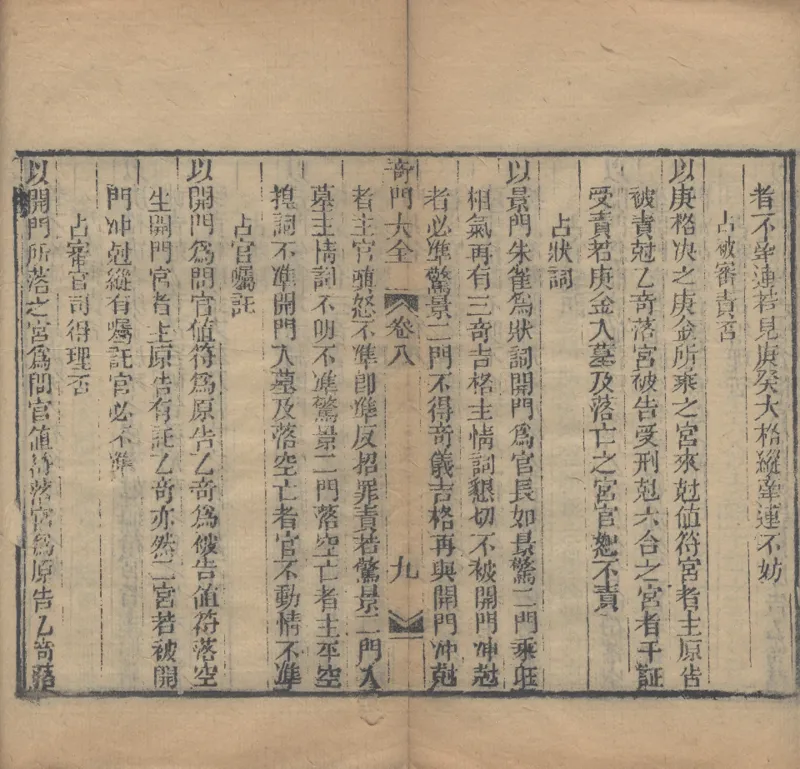 者不牽連若見庚癸大格縱牽連不妨
占被審責否
以庚格决之庚金所乘之宮來尅值符宮者主原告
被責尅乙奇落宮被告受刑尅六合之宮者干証
受責若庚金入墓及落亡之宮官恕不責
占狀詞
以景門朱雀爲狀詞開門爲官長如景驚二門乘旺
相氣再有三奇吉格主情詞懇切不被開門冲尅
者必準驚景二門不得奇儀吉格再與開門冲尅
奇門大全 卷八 九
者主官殖怒不準卽準反招罪責若驚景二門入
墓主情詞不明不準驚景二門落空亡者主平空
揑詞不準開門入墓及落空亡者官不動情不準
占官囑託
以開門爲問官值符爲原告乙奇爲被告值符落空
生開門宮者主原告有託乙奇亦然二宮若被開
門冲尅縱有囑託官必不準
占審官司得理否
以開門所落之宮爲問官值符落宮爲原告乙奇落